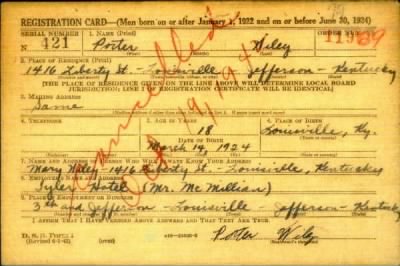 REGISTRATION CARD—(Men born on or after January 1, 1922 and on or before June 30, 1924)
SERIAL NUMBER 1. NAME (Print) ORDER NUMBER
N 421 Porter Wiley
2. PLACE OF RESIDENCE (Print)
1416 Liberty St - Louisville Jefferson - Kentucky
[THE PLACE OF RESIDENCE GIVEN ON THE LINE ABOVE WILL DETERMINE LOCAL BOARD
JURISDICTION; LINE 2 OF REGISTRATION CERTIFICATE WILL BE IDENTICAL]
3. MAILING ADDRESS
Same
4. TELEPHONE 5. AGE IN YEARS 6. PLACE OF BIRTH
18 Louisville, Ky.
DATE OF BIRTH
March 14, 1924
7. NAME AND ADDRESS OF PERSON WHO WILL ALWAYS KNOW YOUR ADDRESS
Mary Wiley - 1416 Liberty St - Louisville, Kentucky
8. EMPLOYER'S NAME AND ADDRESS
Tyler Hotel (Mr. Mc Mullian)
9. PLACE OF EMPLOYMENT OR BUSINESS
3rd and Jefferson - Louisville - Jefferson - Kentucky
I AFFIRM THAT I HAVE VERIFIED ABOVE ANSWERS AND THAT THEY ARE TRUE.
Porter Wiley
Cancelled